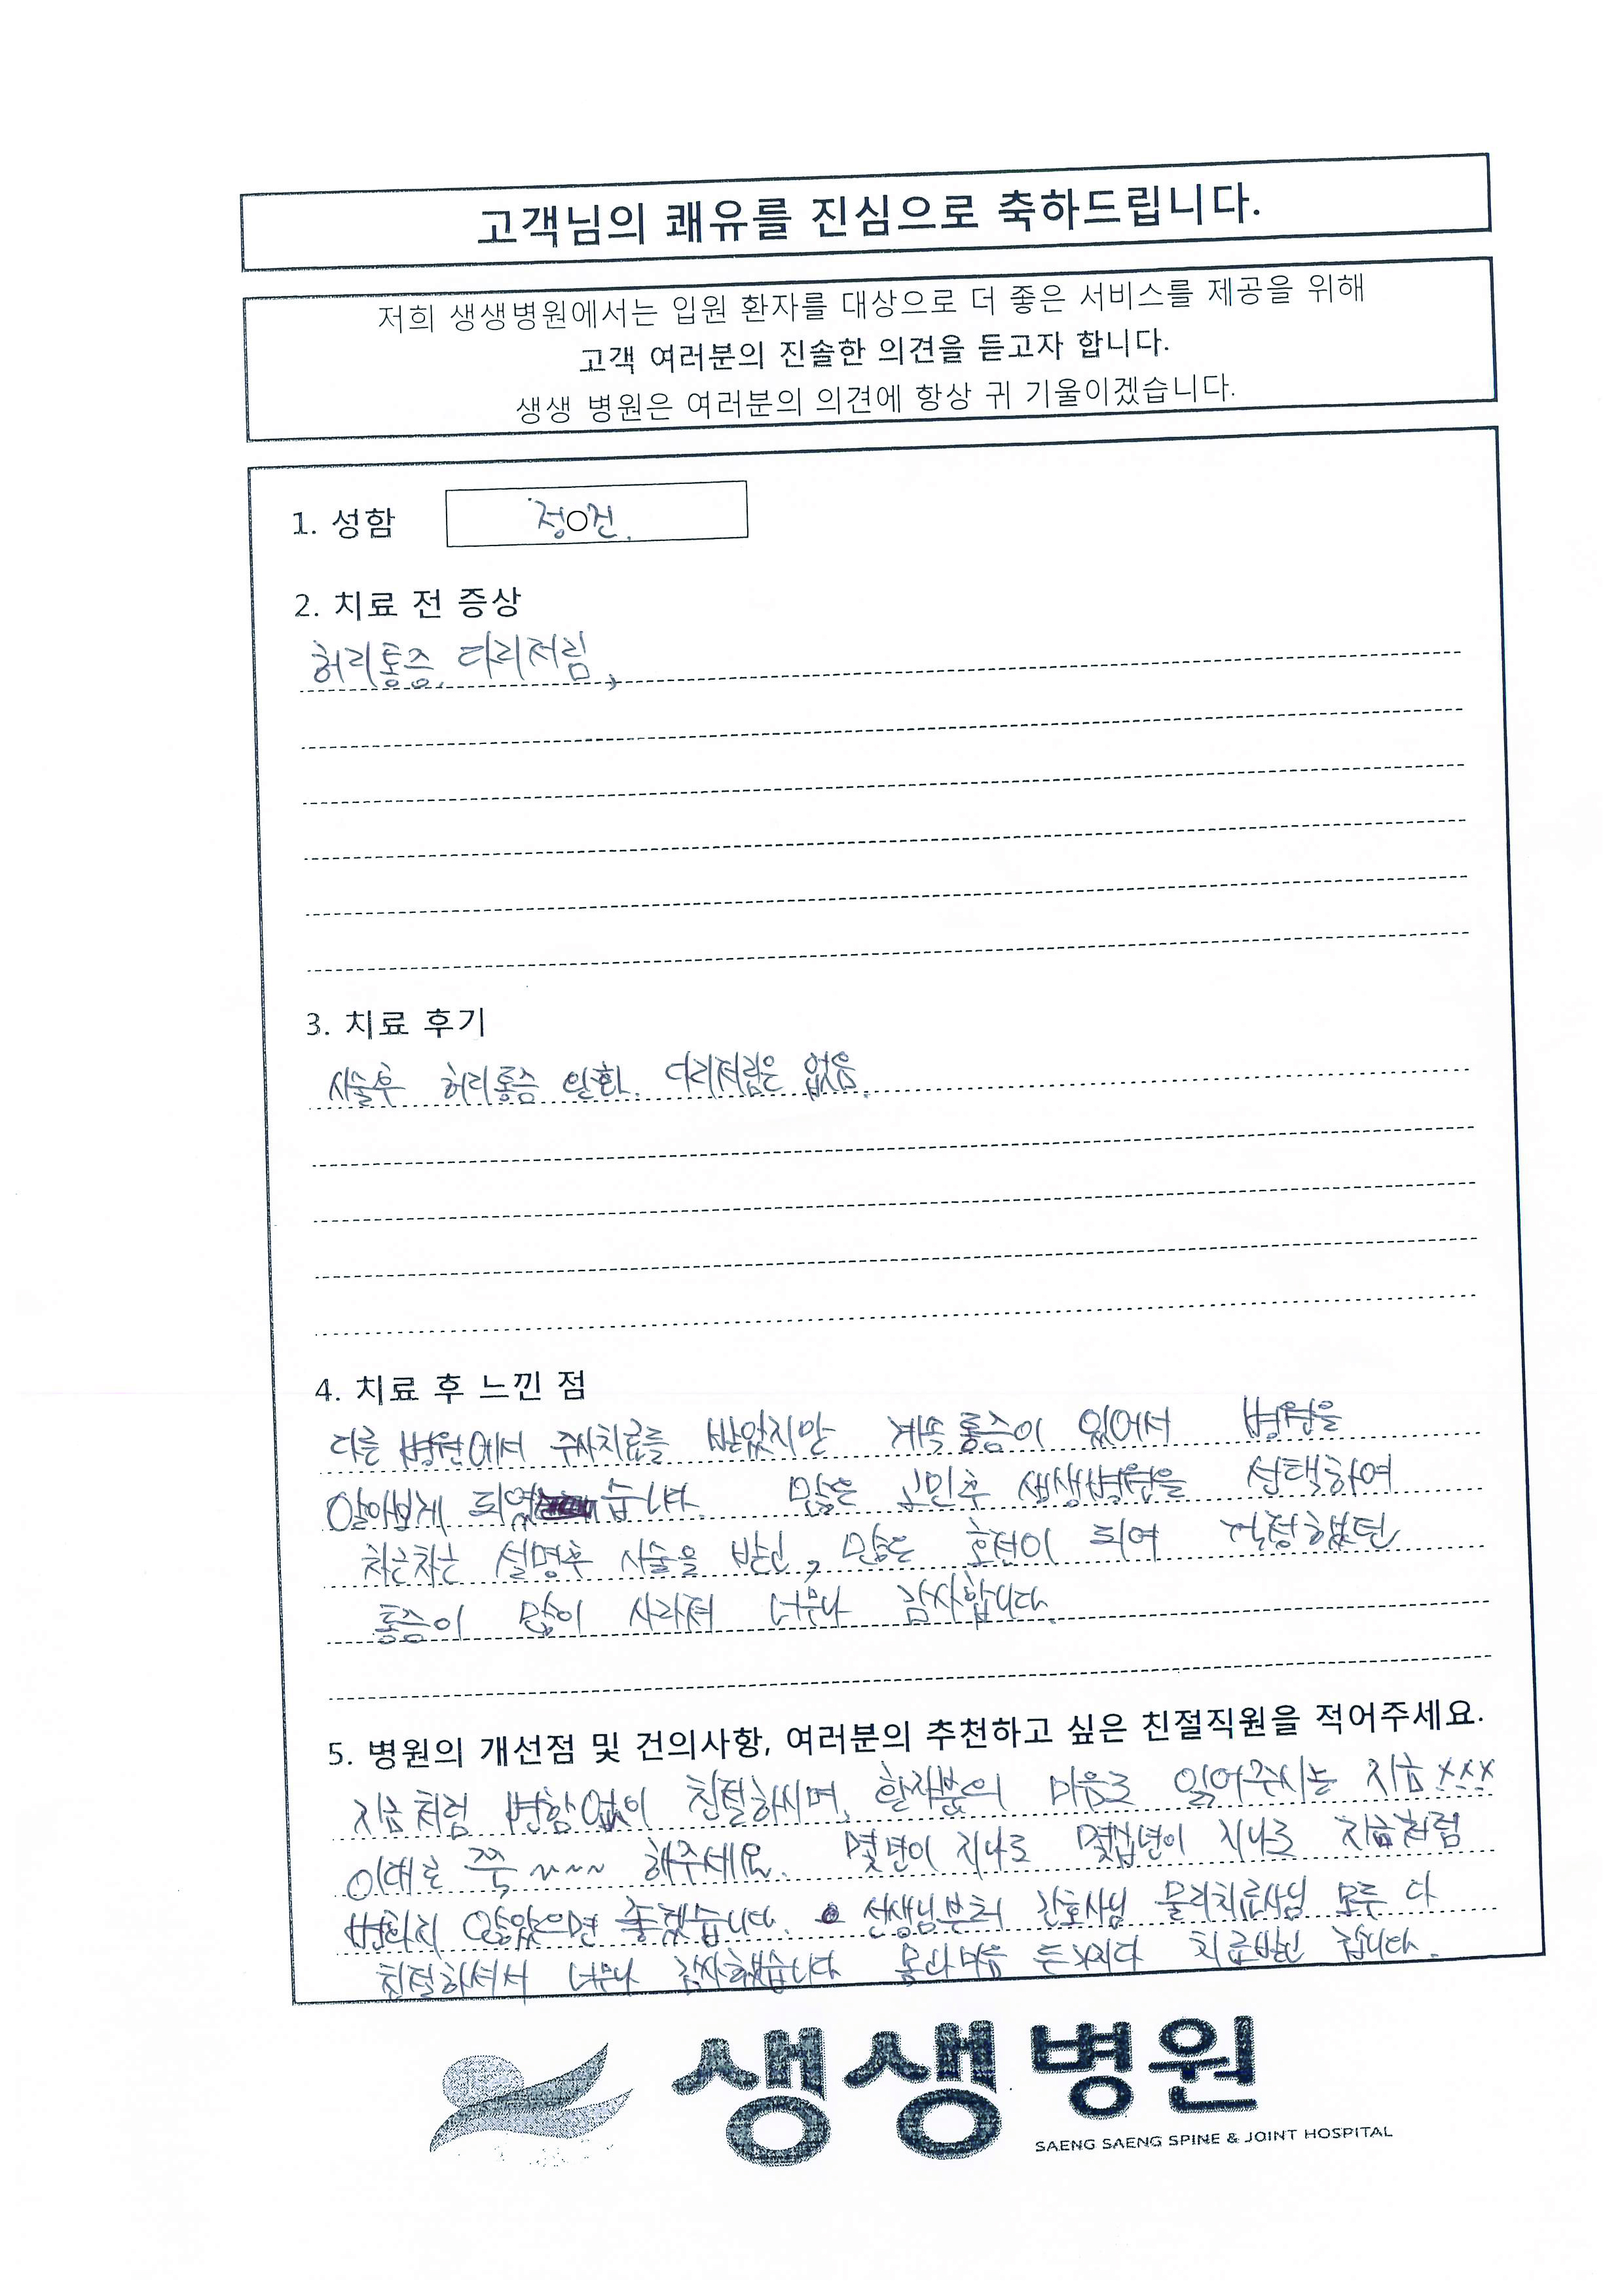 고객님의 쾌유를 진심으로 축하드립니다.
저희 생생병원에서는 입원 환자를 대상으로 더 좋은 서비스를 제공을 위해
고객 여러분의 진솔한 의견을 듣고자 합니다.
생생 병원은 여러분의 의견에 항상 귀 기울이겠습니다.
1. 성함 정O건.
2. 치료 전 증상
허리통증, 다리저림,
3. 치료 후기
시술후 허리통증 완화. 다리저림은 없음.
4. 치료 후 느낀 점
다른 병원에서 주사치료를 받았지만 계속 통증이 있어서 병원을
알아보게 되었습니다. 많은 고민후 생생병원을 선택하여
차근차근 설명후 시술을 받고, 많은 호전이 되여 걱정했던
통증이 많이 사라져 너무나 감사합니다.
5. 병원의 개선점 및 건의사항, 여러분의 추천하고 싶은 친절직원을 적어주세요.
지금처럼 변함없이 친절하시며, 환자분의 마음으로 읽어주시는 지금
이대로 쭉~~~~ 해주세요. 몇년이 지나도 몇십년이 지나도 지금처럼
변하지 않았으면 좋겠습니다. 선생님부터 간호사님 물리치료사님 모두 다
친절하셔서 너무나 감사했습니다 몸과마음 두가지다 치료받고 갑니다.
생생병원
SAENG SAENG SPINE & JOINT HOSPITAL